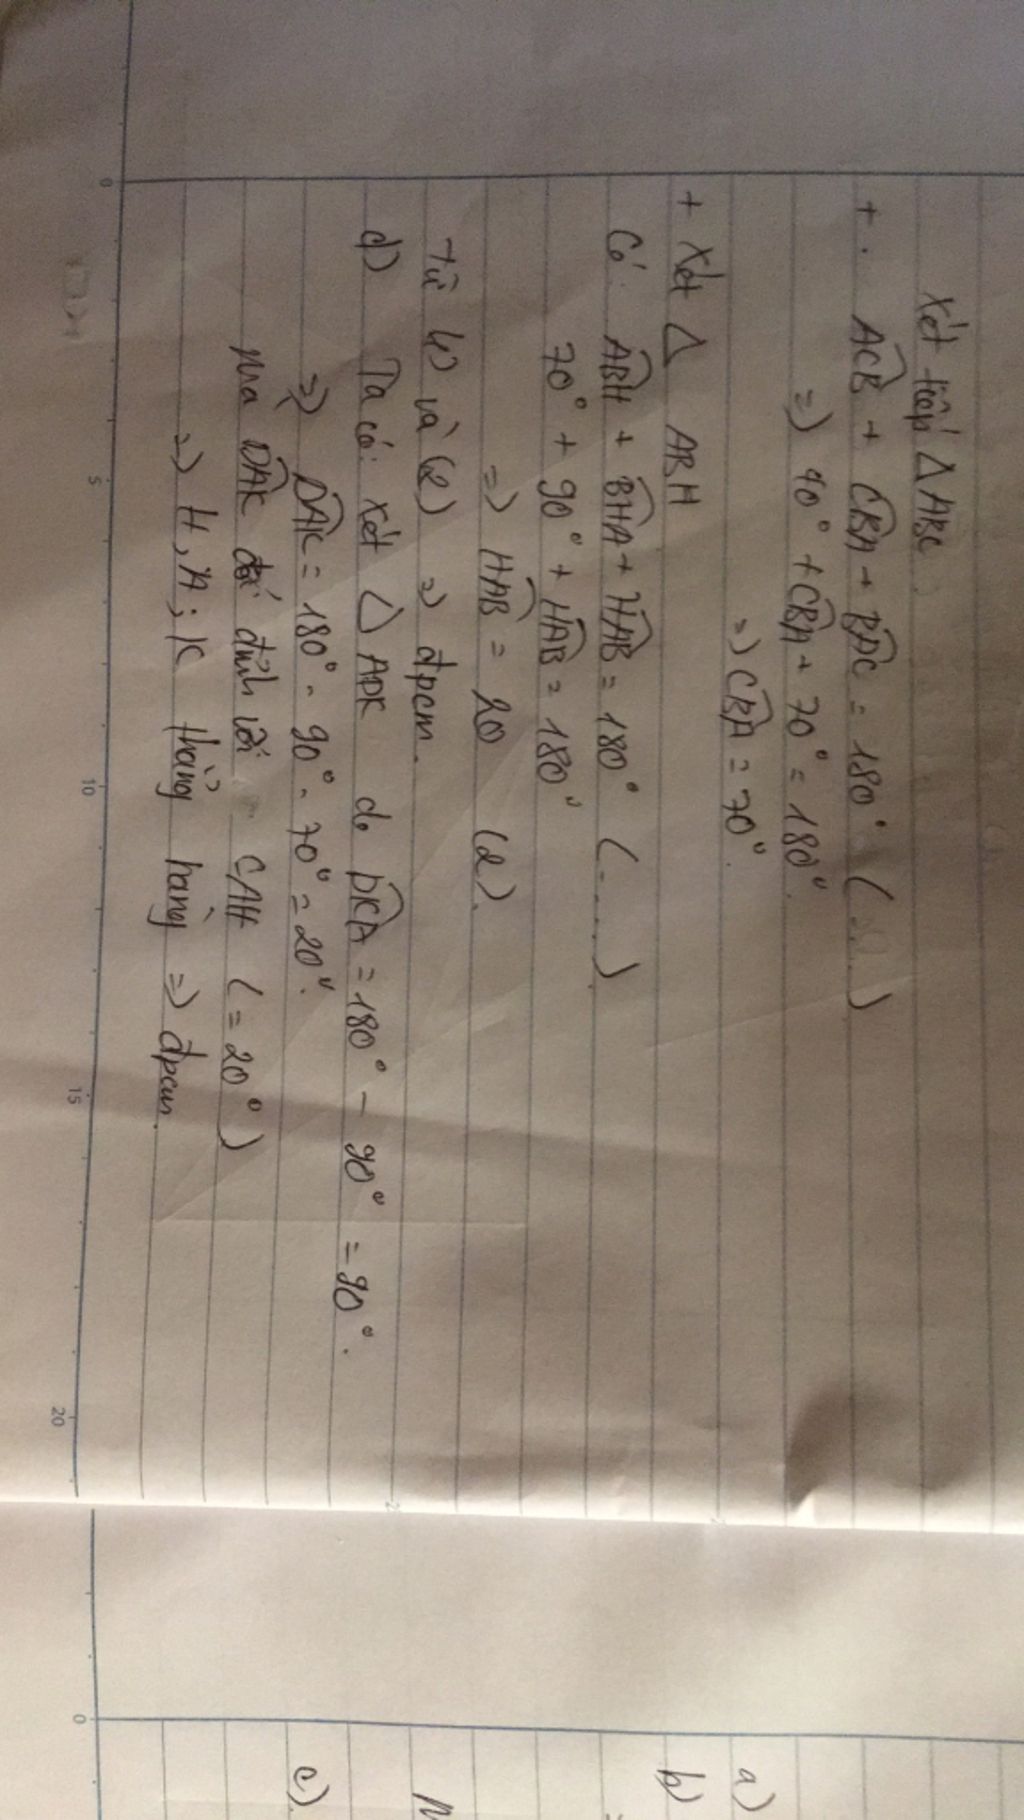 Xét tiếp Δ ABC
+ . ACB + CBA + BAC = 180° (...)
=> 40° + CBA + 70° = 180°.
=> CBA = 70°.
+ Xét Δ ABH
Có: ABH + BHA + HAB = 180° (....)
70° + 90° + HAB = 180°
=> HAB = 20 (2).
Từ (1) và (2) => đpcm.
d) Ta có: Xét Δ ADK do DKA = 180° - 90° = 90°.
=> DAK = 180° - 90° - 70° = 20°.
mà DAK đối đỉnh với CAH (= 20°)
=> H, A; K thẳng hàng => đpcm.
0
5
10
15
20
0
a)
b)
c).